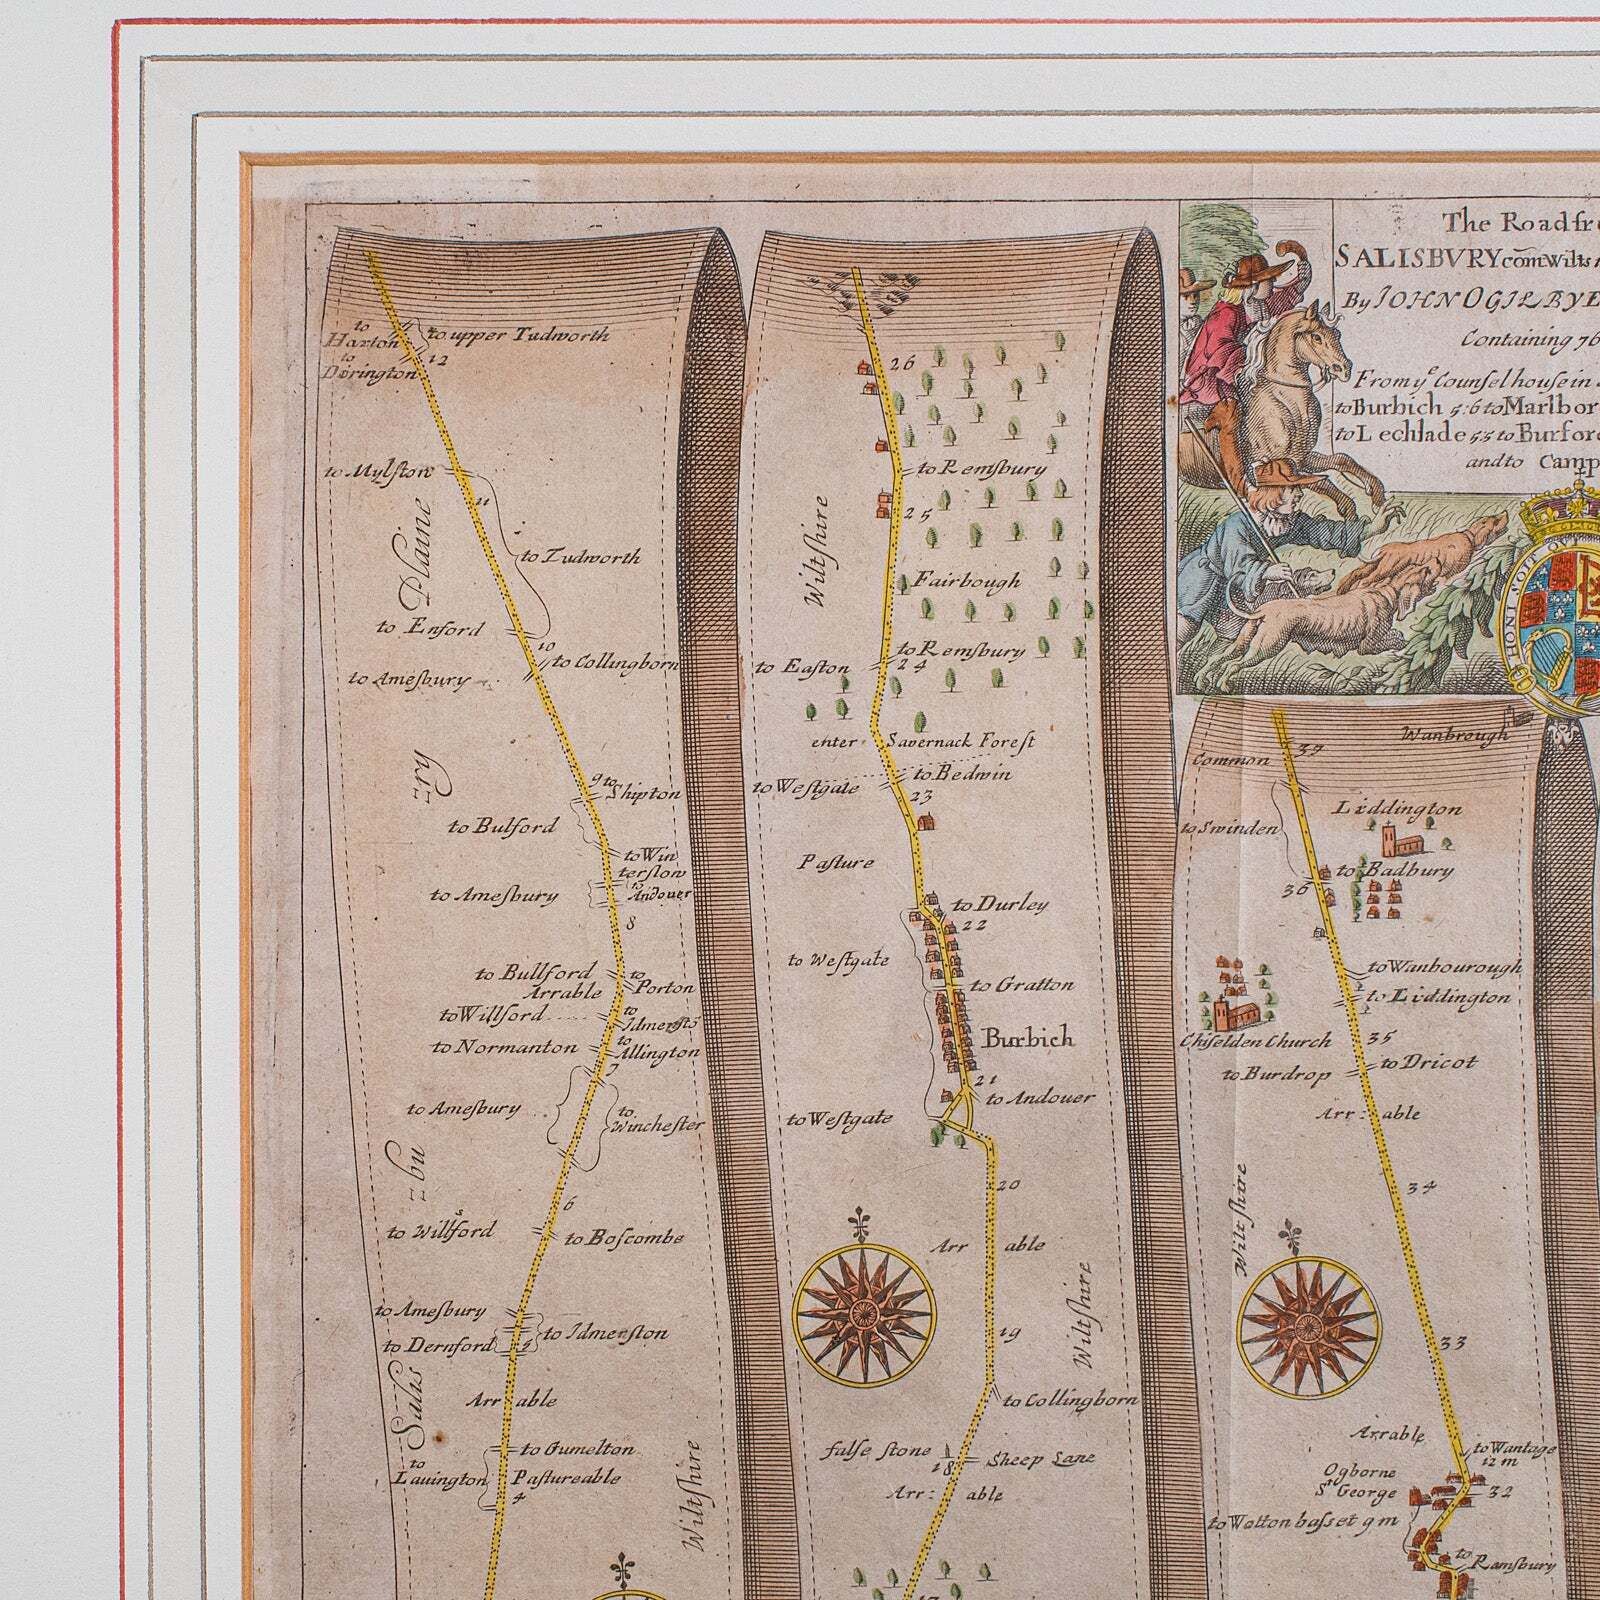 The Road fr
SALISBVRY com Wilts
By IOHN OGILBY E
Containing 76
From yᵉ Counsel house in
to Burbich 5:6 to Marlbor
to Lechlade 53 to Burfor
and to Camp
HONI
to Haxton
to upper Tudworth
to Dorington
12
to Mylſton
11
to Tudworth
Plaine
to Enford
10
to Collingborn
to Ameſbury
9
to Shipton
zry
to Bulford
to Win
terslow
to Ameſbury
to Andouer
8
to Bullford
to Porton
Arrable
to Willford
to Idmerſto
to Normanton
to Allington
7
to Ameſbury
to Wincheſter
zbu
6
to Willford
to Boſcombe
to Ameſbury
to Dernford
5
to Idmerſton
Arr able
Salis
to Gumelton
to Lauington
Paſtureable
4
Wiltſhire
26
to Remſbury
25
Wiltſhire
Fairbough
to Remſbury
to Easton
24
enter Savernack Foreſt
to Bedwin
to Weſtgate
23
Paſture
to Durley
22
to Weſtgate
to Gratton
Burbich
21
to Andouer
to Weſtgate
20
Arr able
Wiltſhire
19
to Collingborn
falſe stone
18
Sheep Lane
Arr: able
17
Wanbrough
37
Common
Liddington
to Swinden
to Badbury
36
to Wanbourough
to Liddington
Chiſelden Church
35
to Dricot
to Burdrop
Arr: able
34
Wiltſhire
33
Arrable
to Wantage
12 m
Ogborne
St George
32
to Wotton baſset 9 m
to Ramſbury